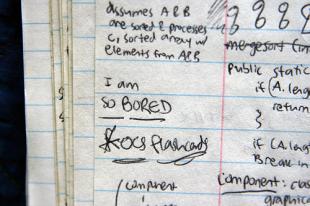 assumes A & B
are sorted & processes
C, sorted array w/
elements from A & B
I am
so BORED
*OCS flashcards
component
mergesort (in
public static
if (A. leng
return
}
if (A. leng
Break in
Component: clas
graphical